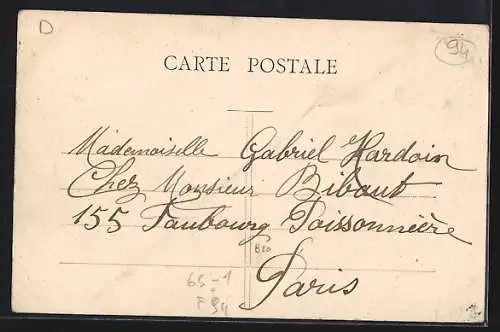 D
94
CARTE POSTALE
Mademoiselle Gabriel Hardoin
Chez Monsieur Bibaut
155 Faubourg Poissonnière
Paris
65-1